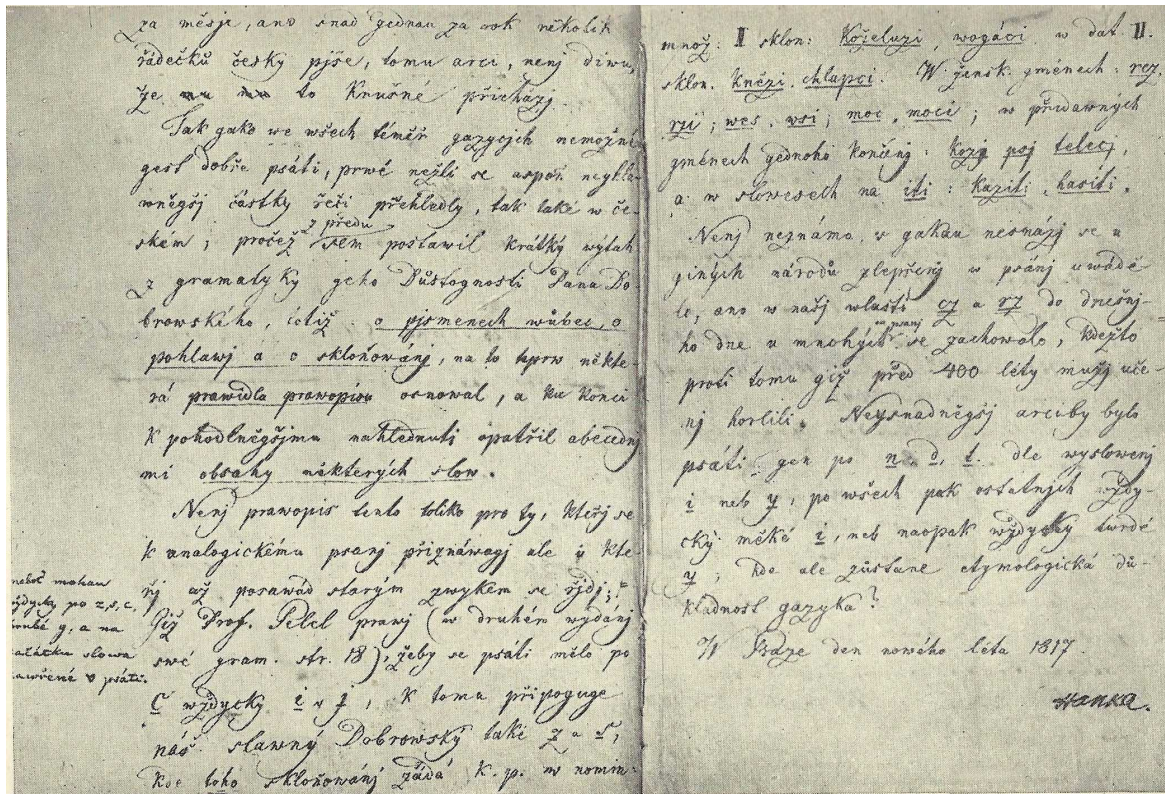 za měsjc, ano snad gednau za rok několik
řádečků česky pjše, tomu arci, nenj diwu,
že to knušné přicházj.
Tak gako we wšech téměř gazycjch nemožné
gest dobře psáti, prwé nežli se aspoň neyhla-
wněgšj částky řeči přehledly, tak také w če-
ském; pročež z předu sem postawil krátký wýtah
z gramatyky geho Důstognosti Pana Do-
browského, totiž o pjsmenech wůbec, o
pohlawj a o skloňowánj, na to uprw někte-
rá prawidla prawopisu osnowal, a ku konci
k pohodlněgšjmu nahlednutj opatřil abecednj-
mi obsahy některých slow.
Nenj prawopis tento toliko pro ty, kteřj se
k analogickému psanj přiznáwagj ale y kte-
řj až posawád starým zwykem se řjdj;
Giž Prof. Pelcl prawj (w druhém wydánj
swé gram. str. 18), žeby se psáti mělo po
c wždycky i y j, k tomu připoguge
náš slawný Dobrowský také z a s,
kde toho skloňowánj žádá k. p. w nomin:
neboť mohau
wždycky po z, s, c,
hrubé y, a na
začátku slowa
zawřené v psáti.
množ: I sklon: Koželuzi, wogáci w dat II.
sklon. knězi, chlapci. W žensk. gménech: rez,
rzi; wes, wsi; moc, moci; w přjdawných
gménech gednoho končenj: kozj psj telecj,
a w slowesech na iti: kaziti, hasiti.
Nenj neznámo, w gakau nesnázj se u
giných národů zlepšenj w psánj uwádě-
lo, ano w našj wlasti cz a rz do dnešnj-
ho dne u mnohých w psanj se zachowalo, kdežto
proti tomu giž před 400 léty mužj uče-
nj horlili. Neysnadněgšj arciby bylo
psáti gen po n, d, t. dle wyslowenj
i neb y, po wšech pak ostatnjch wždy-
cky měké i, neb naopak wždycky twrdé
y; kde ale zůstane etymologická dů-
kladnost gazyka?
W Praze den nowého léta 1817.
Hanka.